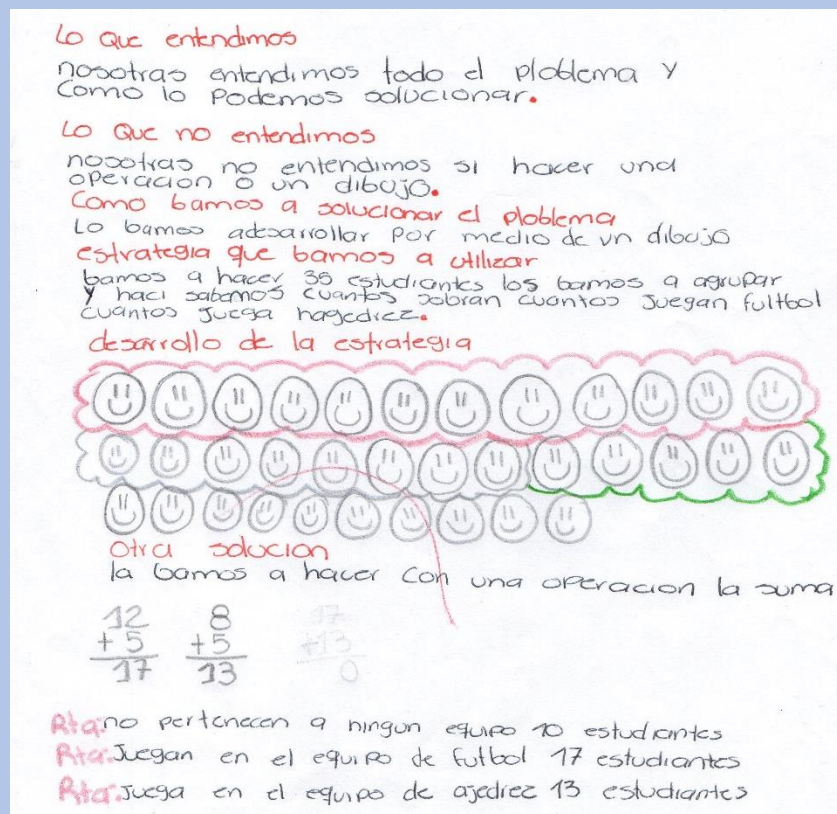 Lo que entendimos
nosotras entendimos todo el ploblema y
como lo podemos solucionar.
Lo que no entendimos
nosotras no entendimos si hacer una
operacion o un dibujo.
Como bamos a solucionar el ploblema
Lo bamos adesarrollar por medio de un dibujo
estrategia que bamos a utilizar
bamos a hacer 35 estudiantes los bamos a agrupar
y haci sabemos cuantos sobran cuantos juegan fultbol
cuantos juega hagedrez.
desarrollo de la estrategia
otra solucion
la bamos a hacer con una operacion la suma
12 8 17
+ 5 +5 +13
17 13 0
Rta: no pertenecen a ningun equipo 10 estudiantes
Rta: Juegan en el equipo de futbol 17 estudiantes
Rta: Juega en el equipo de ajedrez 13 estudiantes